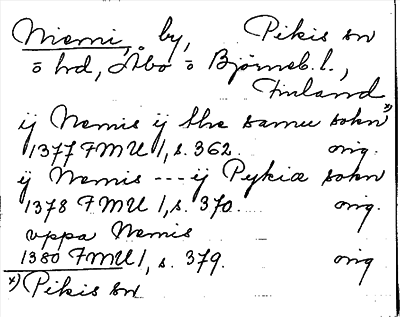 Niemi, by, Pikis sn
ö hd, Åbo o Björneb. l.,
Finland
ij Nemis ij the samu sokn x)
1377 FMU 1, s. 362. orig.
ij Nemis --- ij Pykiæ sokn
1378 FMU 1, s. 370. orig.
uppa Nemis
1380 FMU 1, s. 379. orig
x) Pikis sn